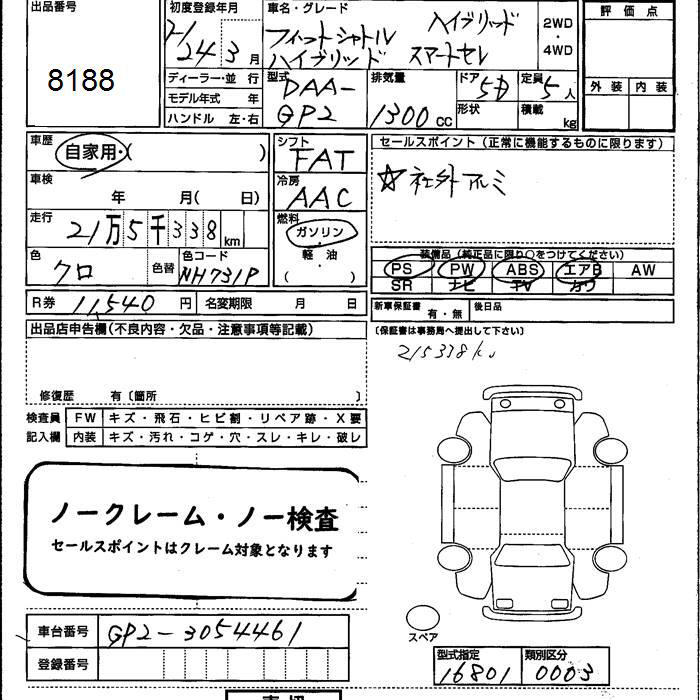 出品番号
8188
初度登録年月
H24 3月
車名・グレード
フィットシャトル ハイブリッド
ハイブリッド スマートセレ
2WD
・
4WD
評価点
外装 内装
ディーラー・並行
モデル年式 年
ハンドル 左・右
型式
DAA-
GP2
排気量
1300 CC
ドア
5D
形状
定員
5人
積載
kg
車歴
自家用・( )
車検
年 月( 日)
走行
21万5千338km
色
クロ
色替
色コード
NH731P
シフト
FAT
冷房
AAC
燃料
ガソリン
・
軽油
( )
セールスポイント(正常に機能するものに限ります)
☆社外アルミ
装備品(純正品に限り○をつけてください)
PS PW ABS エアB AW
SR ナビ TV カワ
R券 11,540円 名変期限 月 日
新車保証書 有・無 後日品
(保証書は事務局へ提出して下さい)
出品店申告欄(不良内容・欠品・注意事項等記載)
215338km
修復歴 有〔箇所 〕
検査員 FW キズ・飛石・ヒビ割・リペア跡・X要
記入欄 内装 キズ・汚れ・コゲ・穴・スレ・キレ・破レ
ノークレーム・ノー検査
セールスポイントはクレーム対象となります
スペア
車台番号 GP2-3054461
登録番号
型式指定
16801
類別区分
0003